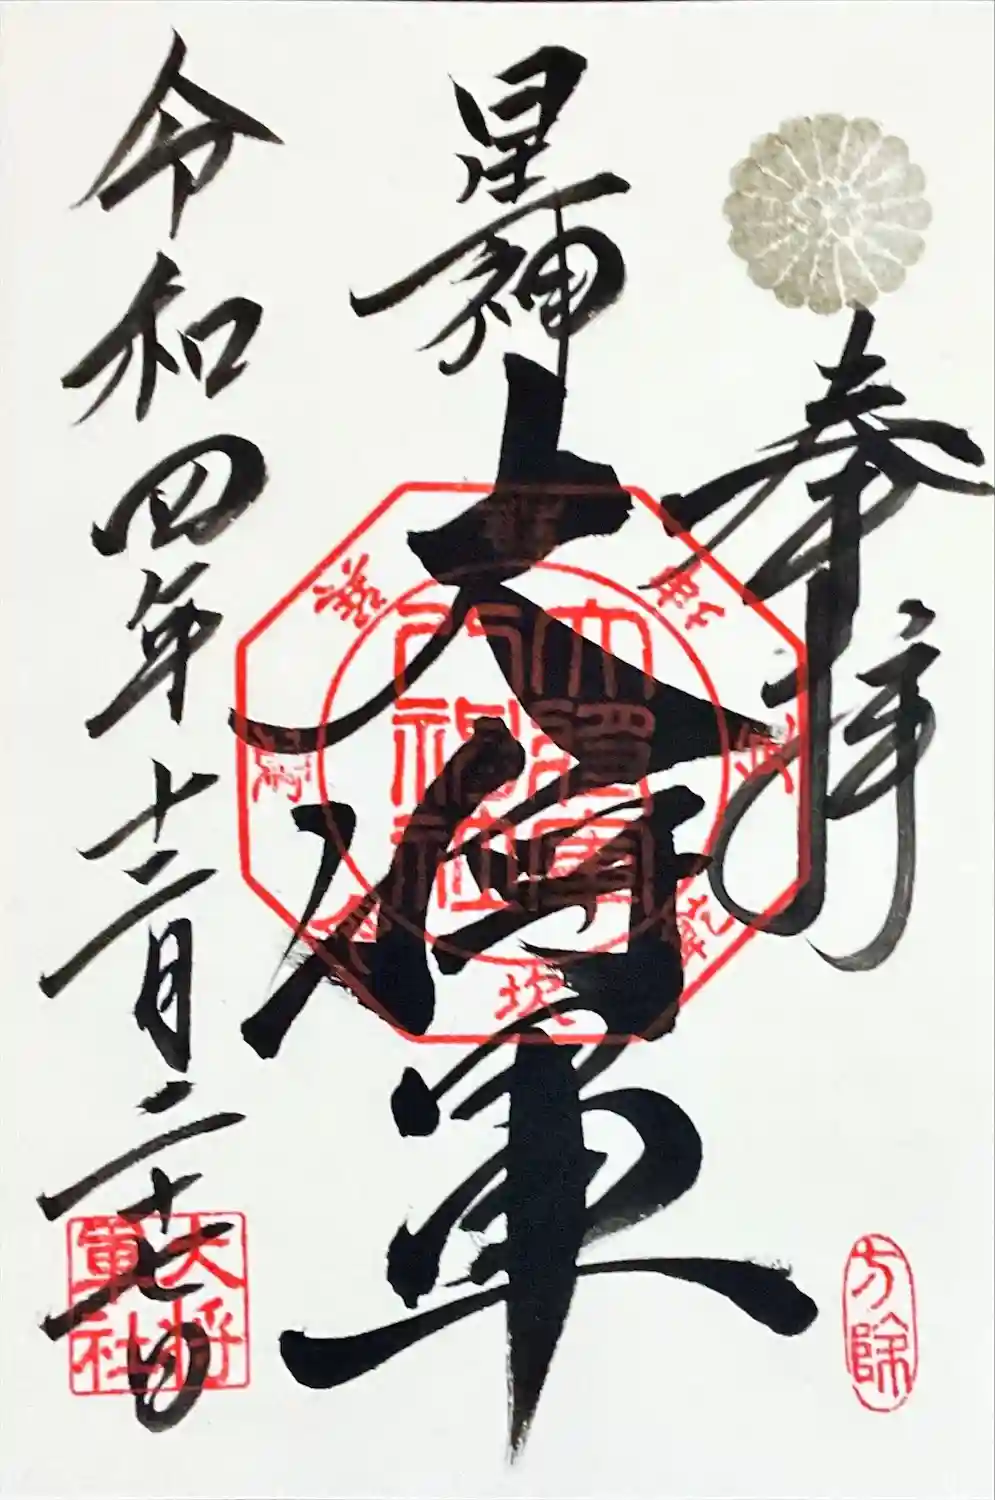 奉拝
星神
大将軍
令和四年十二月二十七日
大将軍八神社
大将軍社
方除
坎